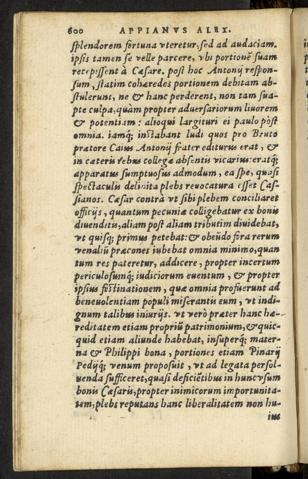 600 APPIANVS ALEX.
splendorem fortuna vteretur, sed ad audaciam.
ipsis tamen se velle parcere, vbi portionē suam
recepissent à Cæsare. post hoc Antonij respon-
sum, statim cohæredes portionem debitam ab-
stulerunt, ne & hanc perderent, non tam sua-
pte culpa, quàm propter aduersariorum liuorem
& potentiam: alioqui largituri ei paulo pòst
omnia. iamq́; instabant ludi quos pro Bruto
prætore Caius Antonij frater editurus erat, &
in cæteris rebus collegæ absentis vicarius: eratq́;
apparatus sumptuosus admodum, ea spe, quasi
spectaculis delinita plebs reuocatura esset Cas-
sianos. Cæsar contrà vt sibi plebem conciliaret
officijs, quantum pecuniæ colligebatur ex bonis
diuenditis, aliam post aliam tributim diuidebat,
vt quisq; primus petebat: & obeūdo fora rerum
venaliū præcones iubebat omnia minino, quan-
tum res pateretur, addicere, propter incertum
periculosumq́; iudiciorum euentum, & propter
ipsius festinationem, quæ omnia proferunt ad
beneuolentiam populi miserantis eum, vt indi-
gnum talibus iniurijs. vt verò præter hanc hæ-
reditatem etiam propriū patrimonium, & quic-
quid etiam aliunde habebat, insuperq́; mater-
na & Philippi bona, portiones etiam Pinarij
Pedijq́; venum proposuit, vt ad legata persol-
uenda sufficeret, quasi deficiētibus in huncvsum
bonis Cæsaris, propter inimicorum importunita-
tem, plebs reputans hanc liberalitatem non hu-
ius